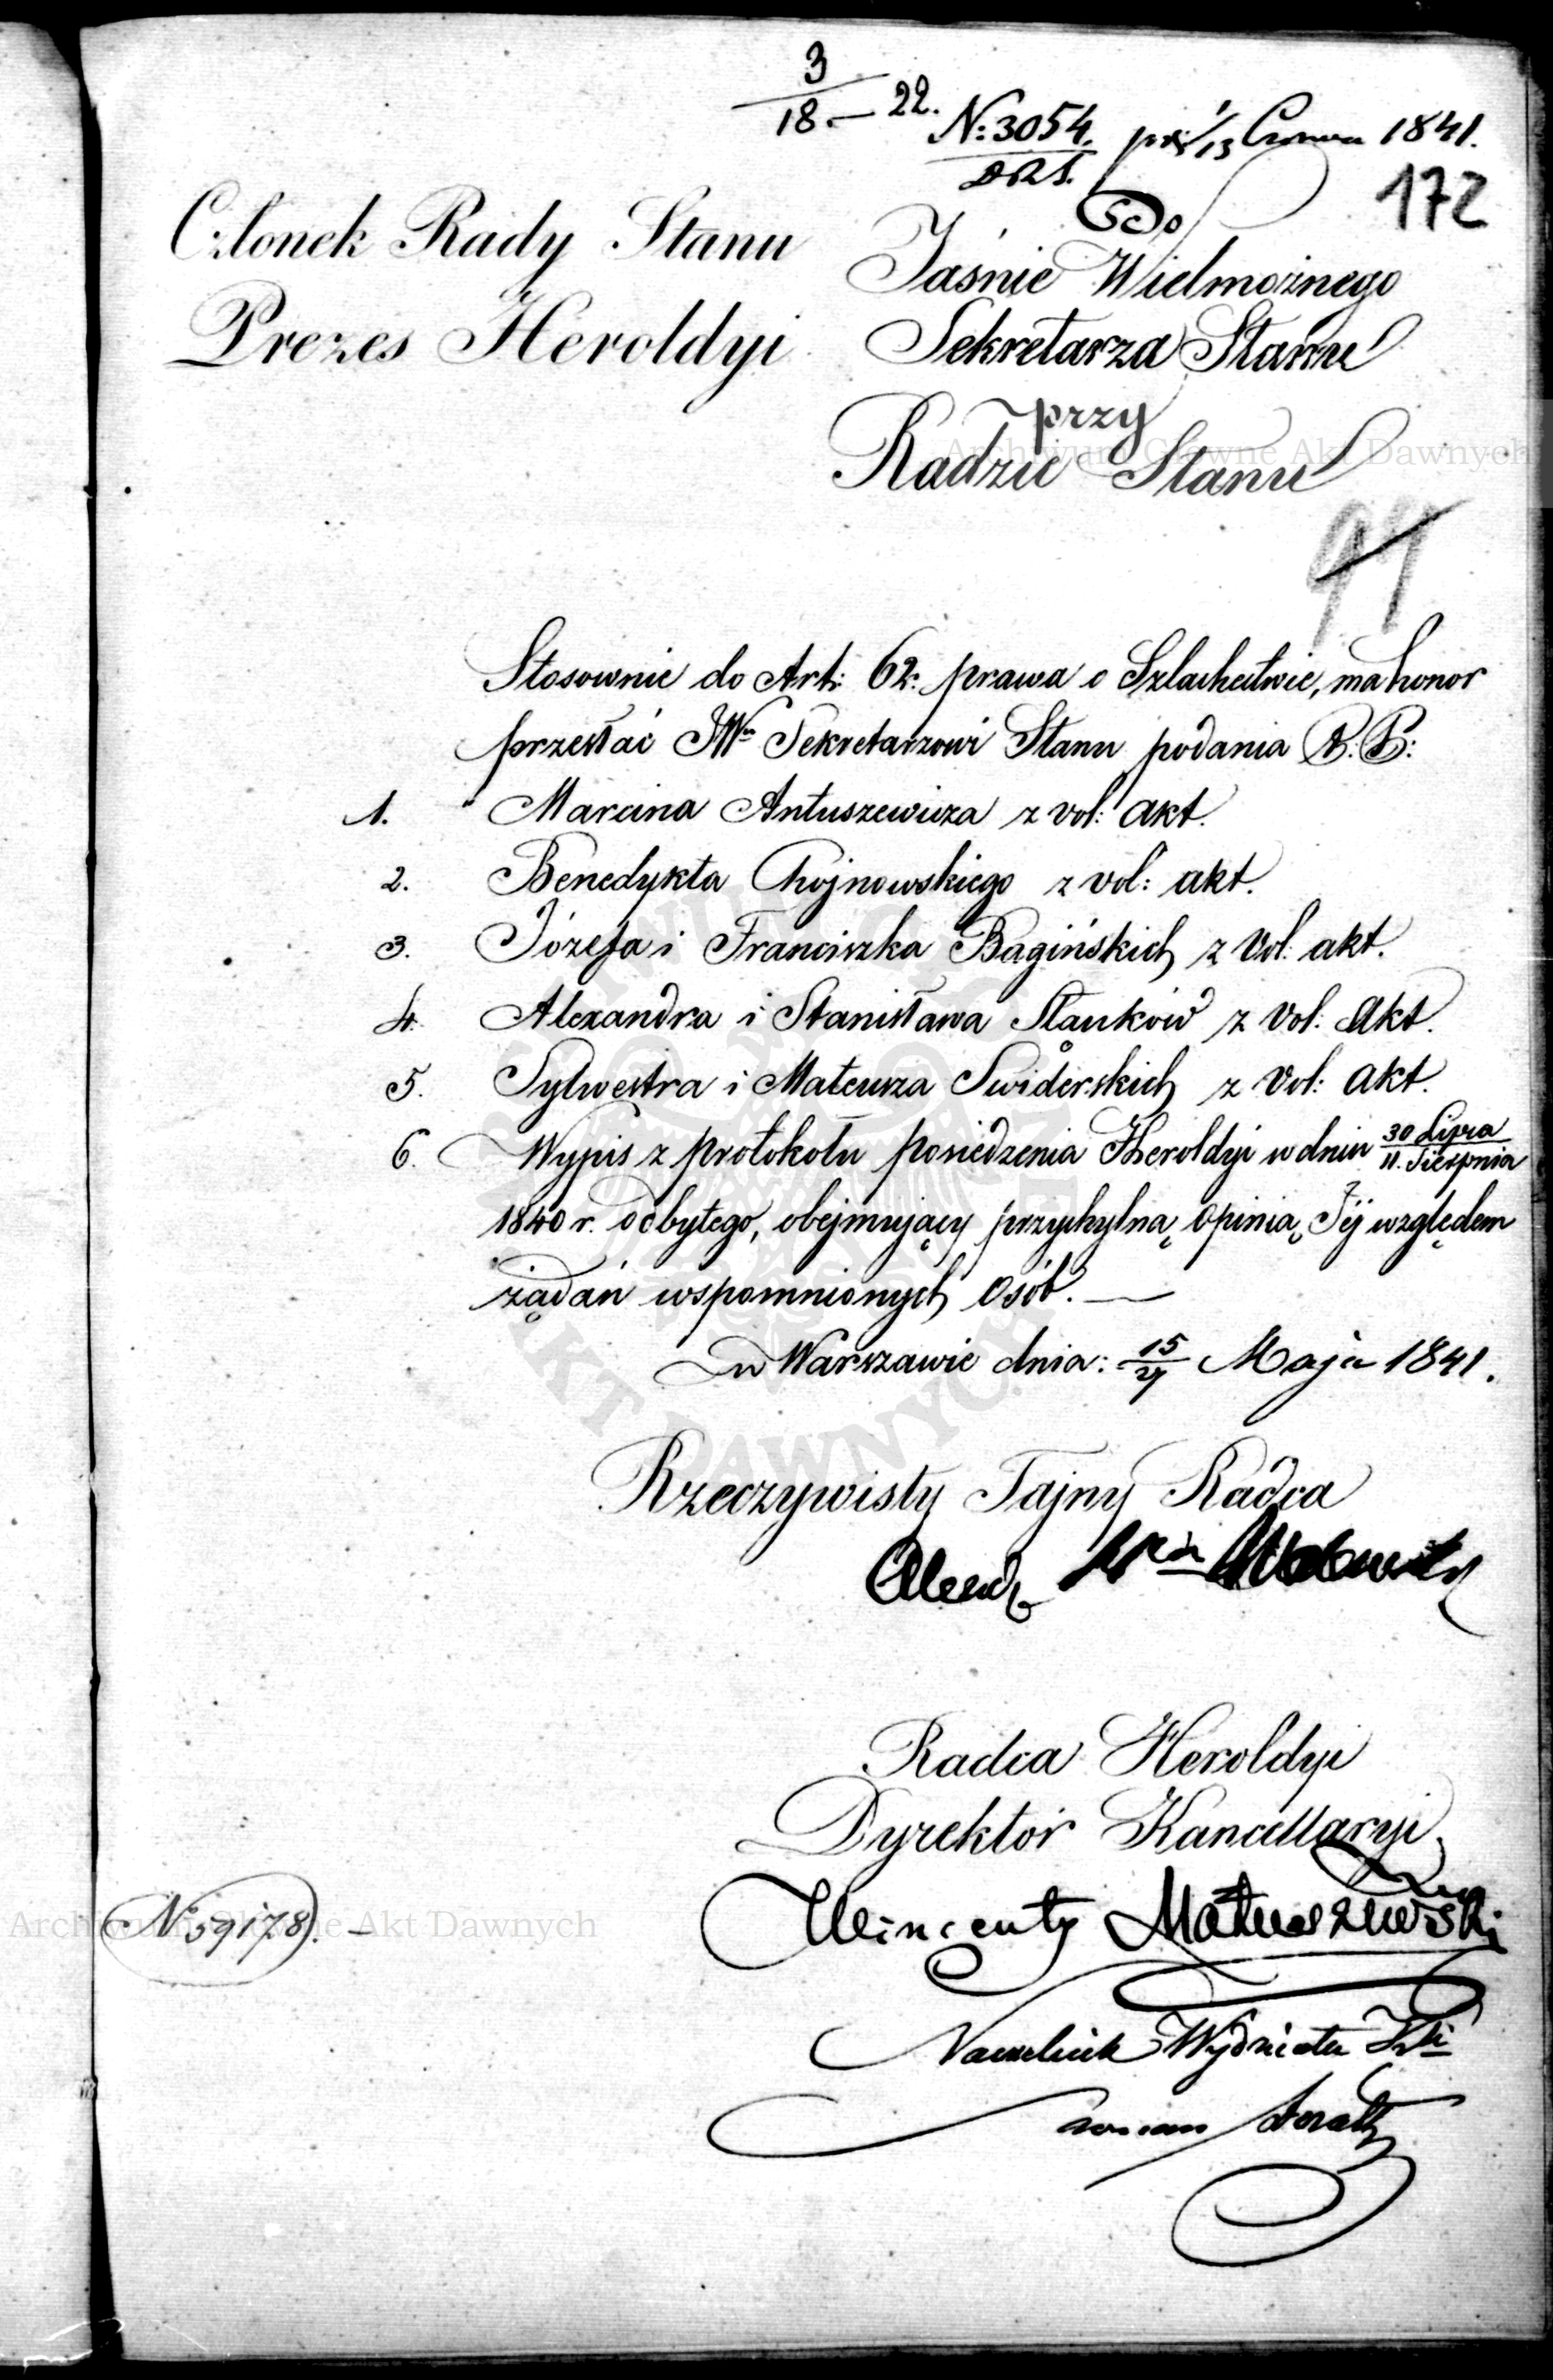 3
18.— 22.
N: 3054. 1/13 Czerwca 1841.
DRS.
172
Członek Rady Stanu
Prezes Heroldyi
Do
Jaśnie Wielmożnego
Sekretarza Stanu
przy
Radzie Stanu
Stosownie do Art: 62. prawa o Szlachectwie, ma honor
przesłać JWu Sekretarzowi Stanu podania P.P:
1. Marcina Antuszewicza z vol: akt.
2. Benedykta Chojnowskiego z vol: akt.
3. Józefa i Franciszka Bagińskich z Vol: akt.
4. Alexandra i Stanisława Słąnków z Vol: Akt.
5. Sylwestra i Mateusza Swiderskich z Vol: Akt.
6. Wypis z protokołu posiedzenia Heroldyi w dniu 30 Lipca / 11. Sierpnia
1840 r. odbytego, obejmujący przychylną opinią Jéj względem
żądań wspomnionych Osób. —
w Warszawie dnia: 15/27 Maja 1841.
Rzeczywisty Tajny Radca
Radca Heroldyi
Dyrektor Kancellaryi
Wincenty Matuszewski
N. 59178. —
Naczelnik Wydziału
Archiwum Główne Akt Dawnych
Archiwum Główne Akt Dawnych
AKT DAWNYCH